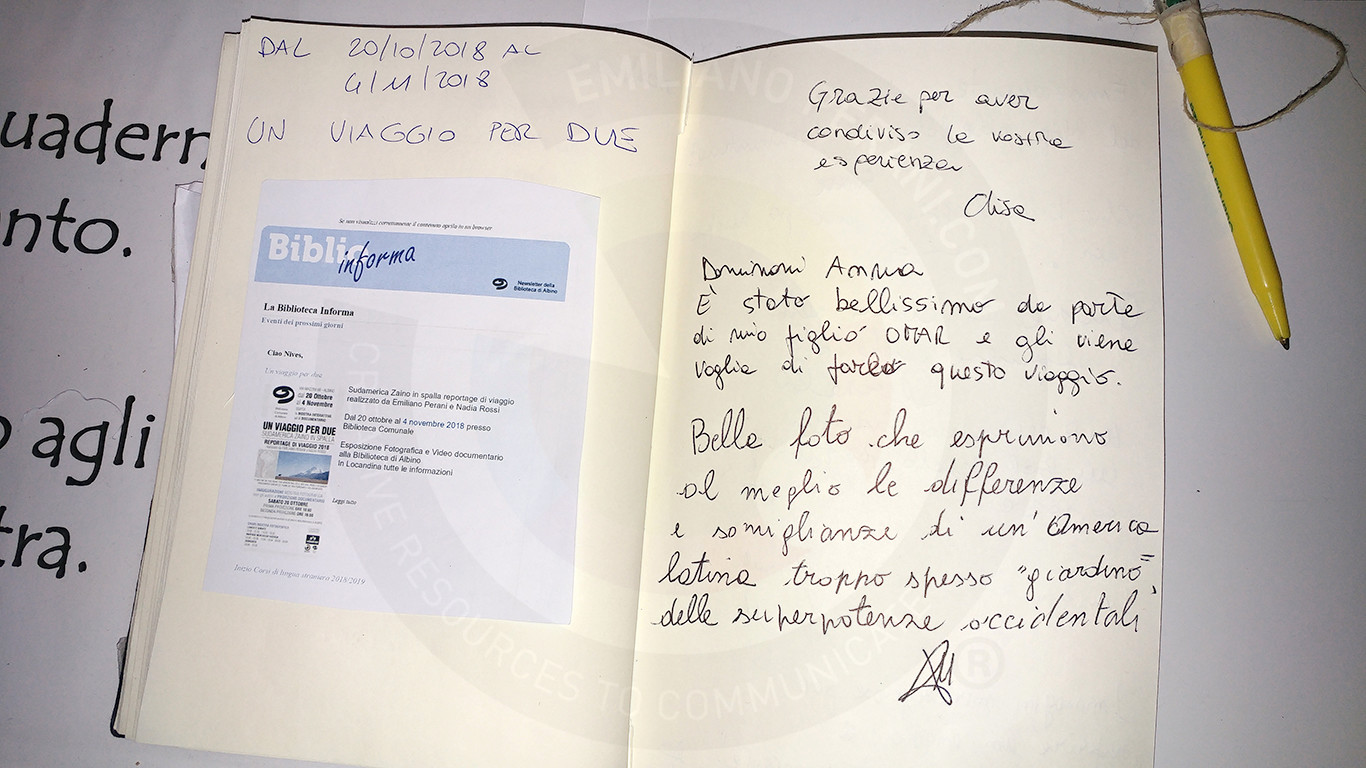 uadern
nto.
o agli
tra.
DAL 20/10/2018 AL
4/11/2018
UN VIAGGIO PER DUE
Se non visualizzi correttamente il contenuto aprilo in un browser
Biblio
informa
Newsletter della
Biblioteca di Albino
La Biblioteca Informa
Eventi dei prossimi giorni
Ciao Nives,
Un viaggio per due
dal 20 Ottobre
al 4 Novembre
UN VIAGGIO PER DUE
SUDAMERICA ZAINO IN SPALLA
REPORTAGE DI VIAGGIO 2018
SABATO 20 OTTOBRE
Sudamerica Zaino in spalla reportage di viaggio
realizzato da Emiliano Perani e Nadia Rossi
Dal 20 ottobre al 4 novembre 2018 presso
Biblioteca Comunale
Esposizione Fotografica e Video documentario
alla Bibilioteca di Albino
In Locandina tutte le informazioni
Leggi tutto
Inizio Corsi di lingua straniera 2018/2019
Grazie per aver
condiviso la vostra
esperienza
Elisa
Anna
È stato bellissimo da parte
di mio figlio OMAR e gli viene
voglia di farlo questo viaggio.
Belle foto che esprimono
al meglio le differenze
e somiglianze di un'America
latina troppo spesso "giardino"
delle superpotenze occidentali
EMILIANO PERANI.COM
CREATIVE RESOURCES TO COMMUNICATE
®